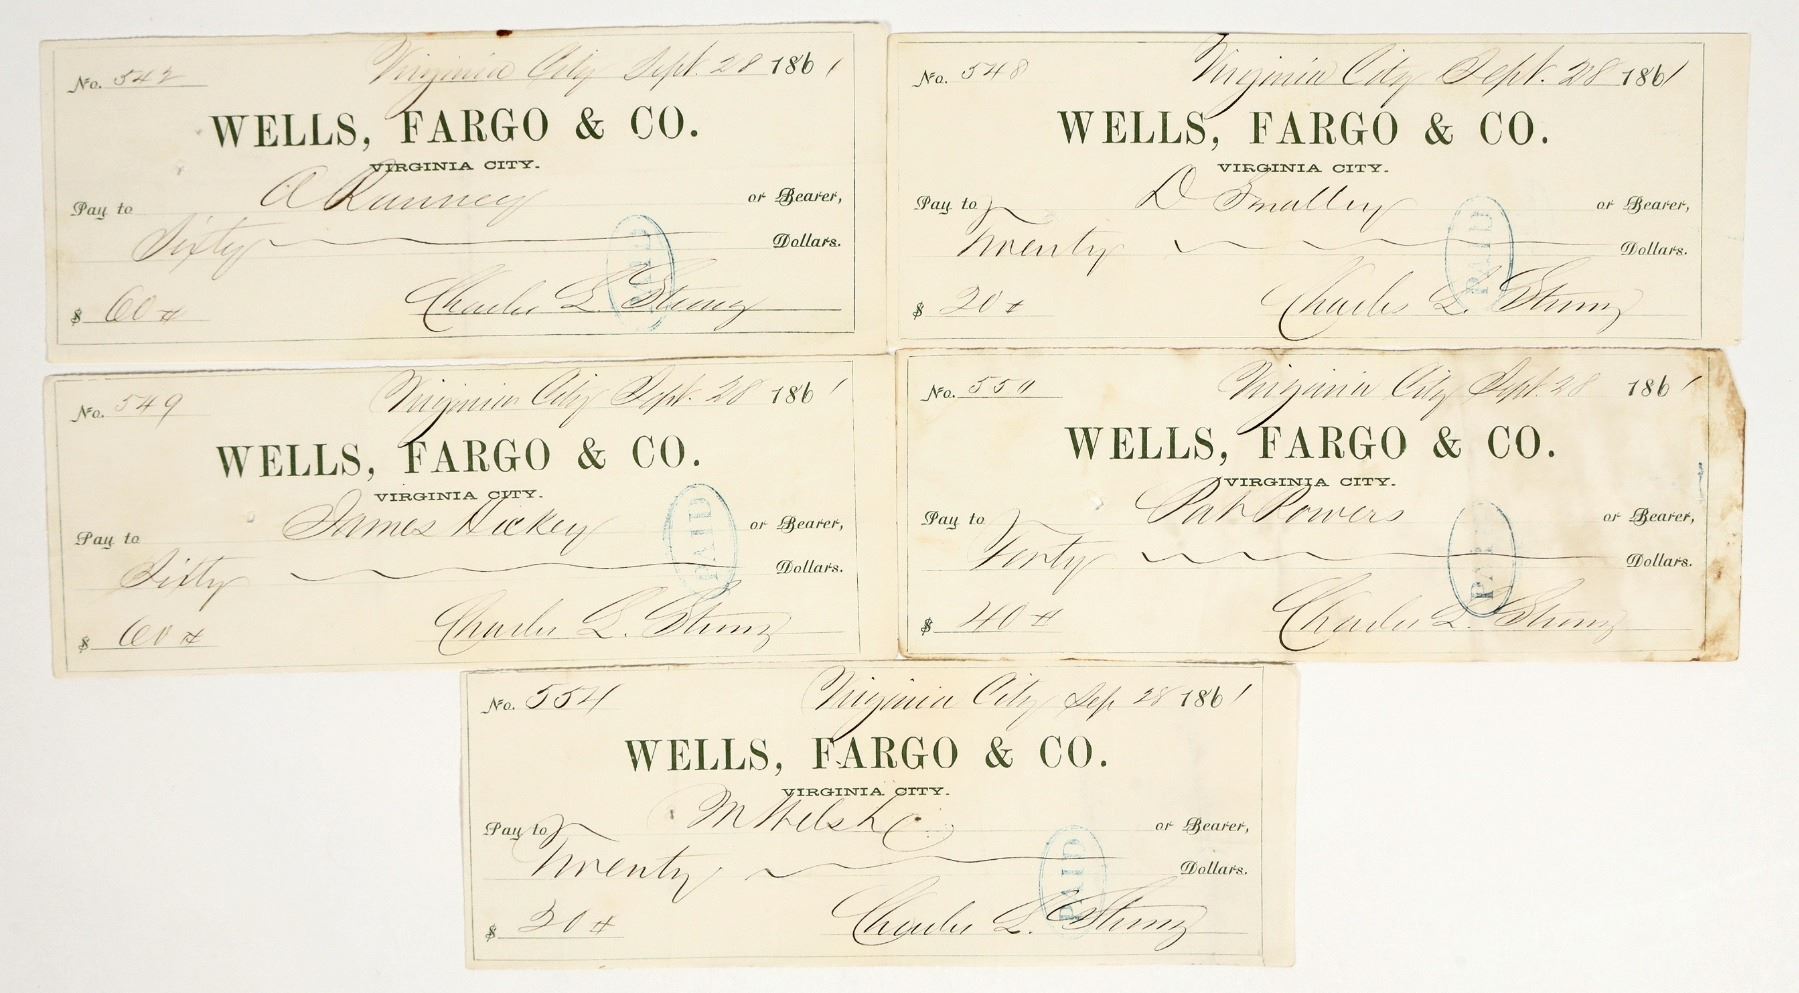 No. 542 Virginia City Sept. 28 1861
WELLS, FARGO & CO.
VIRGINIA CITY.
Pay to A Ranney or Bearer,
Sixty Dollars.
PAID
$ 60 Charles L. Strong
No. 548 Virginia City Sept. 28 1861
WELLS, FARGO & CO.
VIRGINIA CITY.
Pay to D Smalley or Bearer,
Twenty Dollars.
PAID
$ 20 Charles L. Strong
No. 549 Virginia City Sept. 28 1861
WELLS, FARGO & CO.
VIRGINIA CITY.
Pay to James Hickey or Bearer,
Sixty Dollars.
PAID
$ 60 Charles L. Strong
No. 550 Virginia City Sept. 28 1861
WELLS, FARGO & CO.
VIRGINIA CITY.
Pay to Pat Powers or Bearer,
Forty Dollars.
PAID
$ 40 Charles L. Strong
No. 554 Virginia City Sep 28 1861
WELLS, FARGO & CO.
VIRGINIA CITY.
Pay to M Welsh or Bearer,
Twenty Dollars.
PAID
$ 20 Charles L. Strong